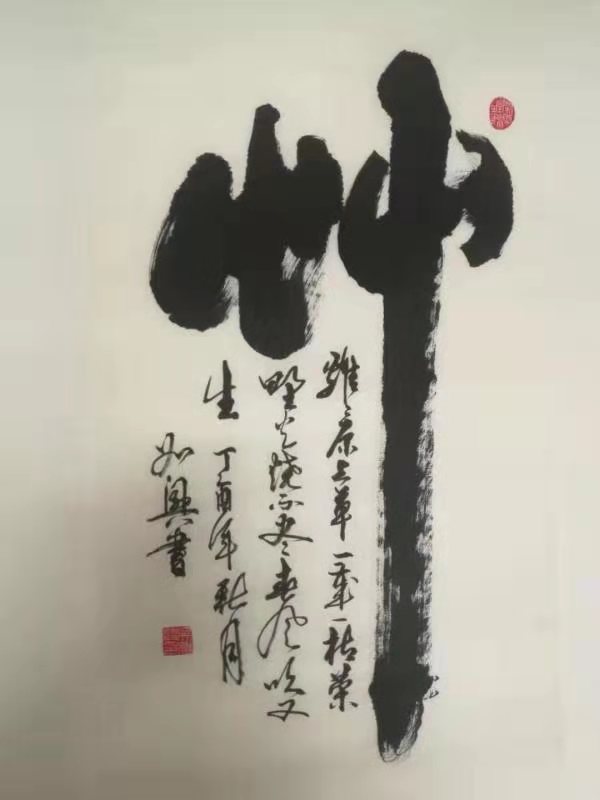 艸
離〻原上草一歲一枯榮
野火燒不盡春風吹又
生 丁酉年秋月
如興書